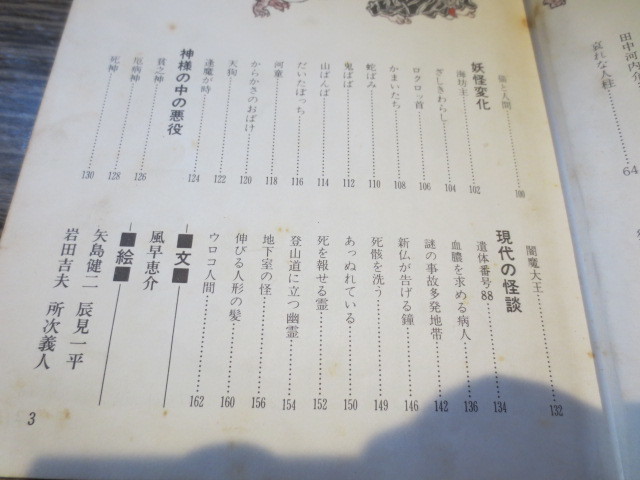 田中河内
哀れな人柱
64
猫と人間 100
妖怪変化
海坊主 102
ざしきわらし 104
ロクロッ首 106
かまいたち 108
蛇ばみ 110
鬼ばば 112
山ばんば 114
だいだぼっち 116
河童 118
からかさのおばけ 120
天狗 122
逢魔が時 124
神様の中の悪役
貧乏神 126
疫病神 128
死神 130
閻魔大王 132
現代の怪談
遺体番号88 134
血膿を求める病人 136
謎の事故多発地帯 142
新仏が告げる鐘 146
死骸を洗う 149
あっぬれている 150
死を報せる霊 152
登山道に立つ幽霊 154
地下室の怪 156
伸びる人形の髪 160
ウロコ人間 162
■文■
風早恵介
■絵■
矢島健二 辰見一平
岩田吉夫 所次義人
3